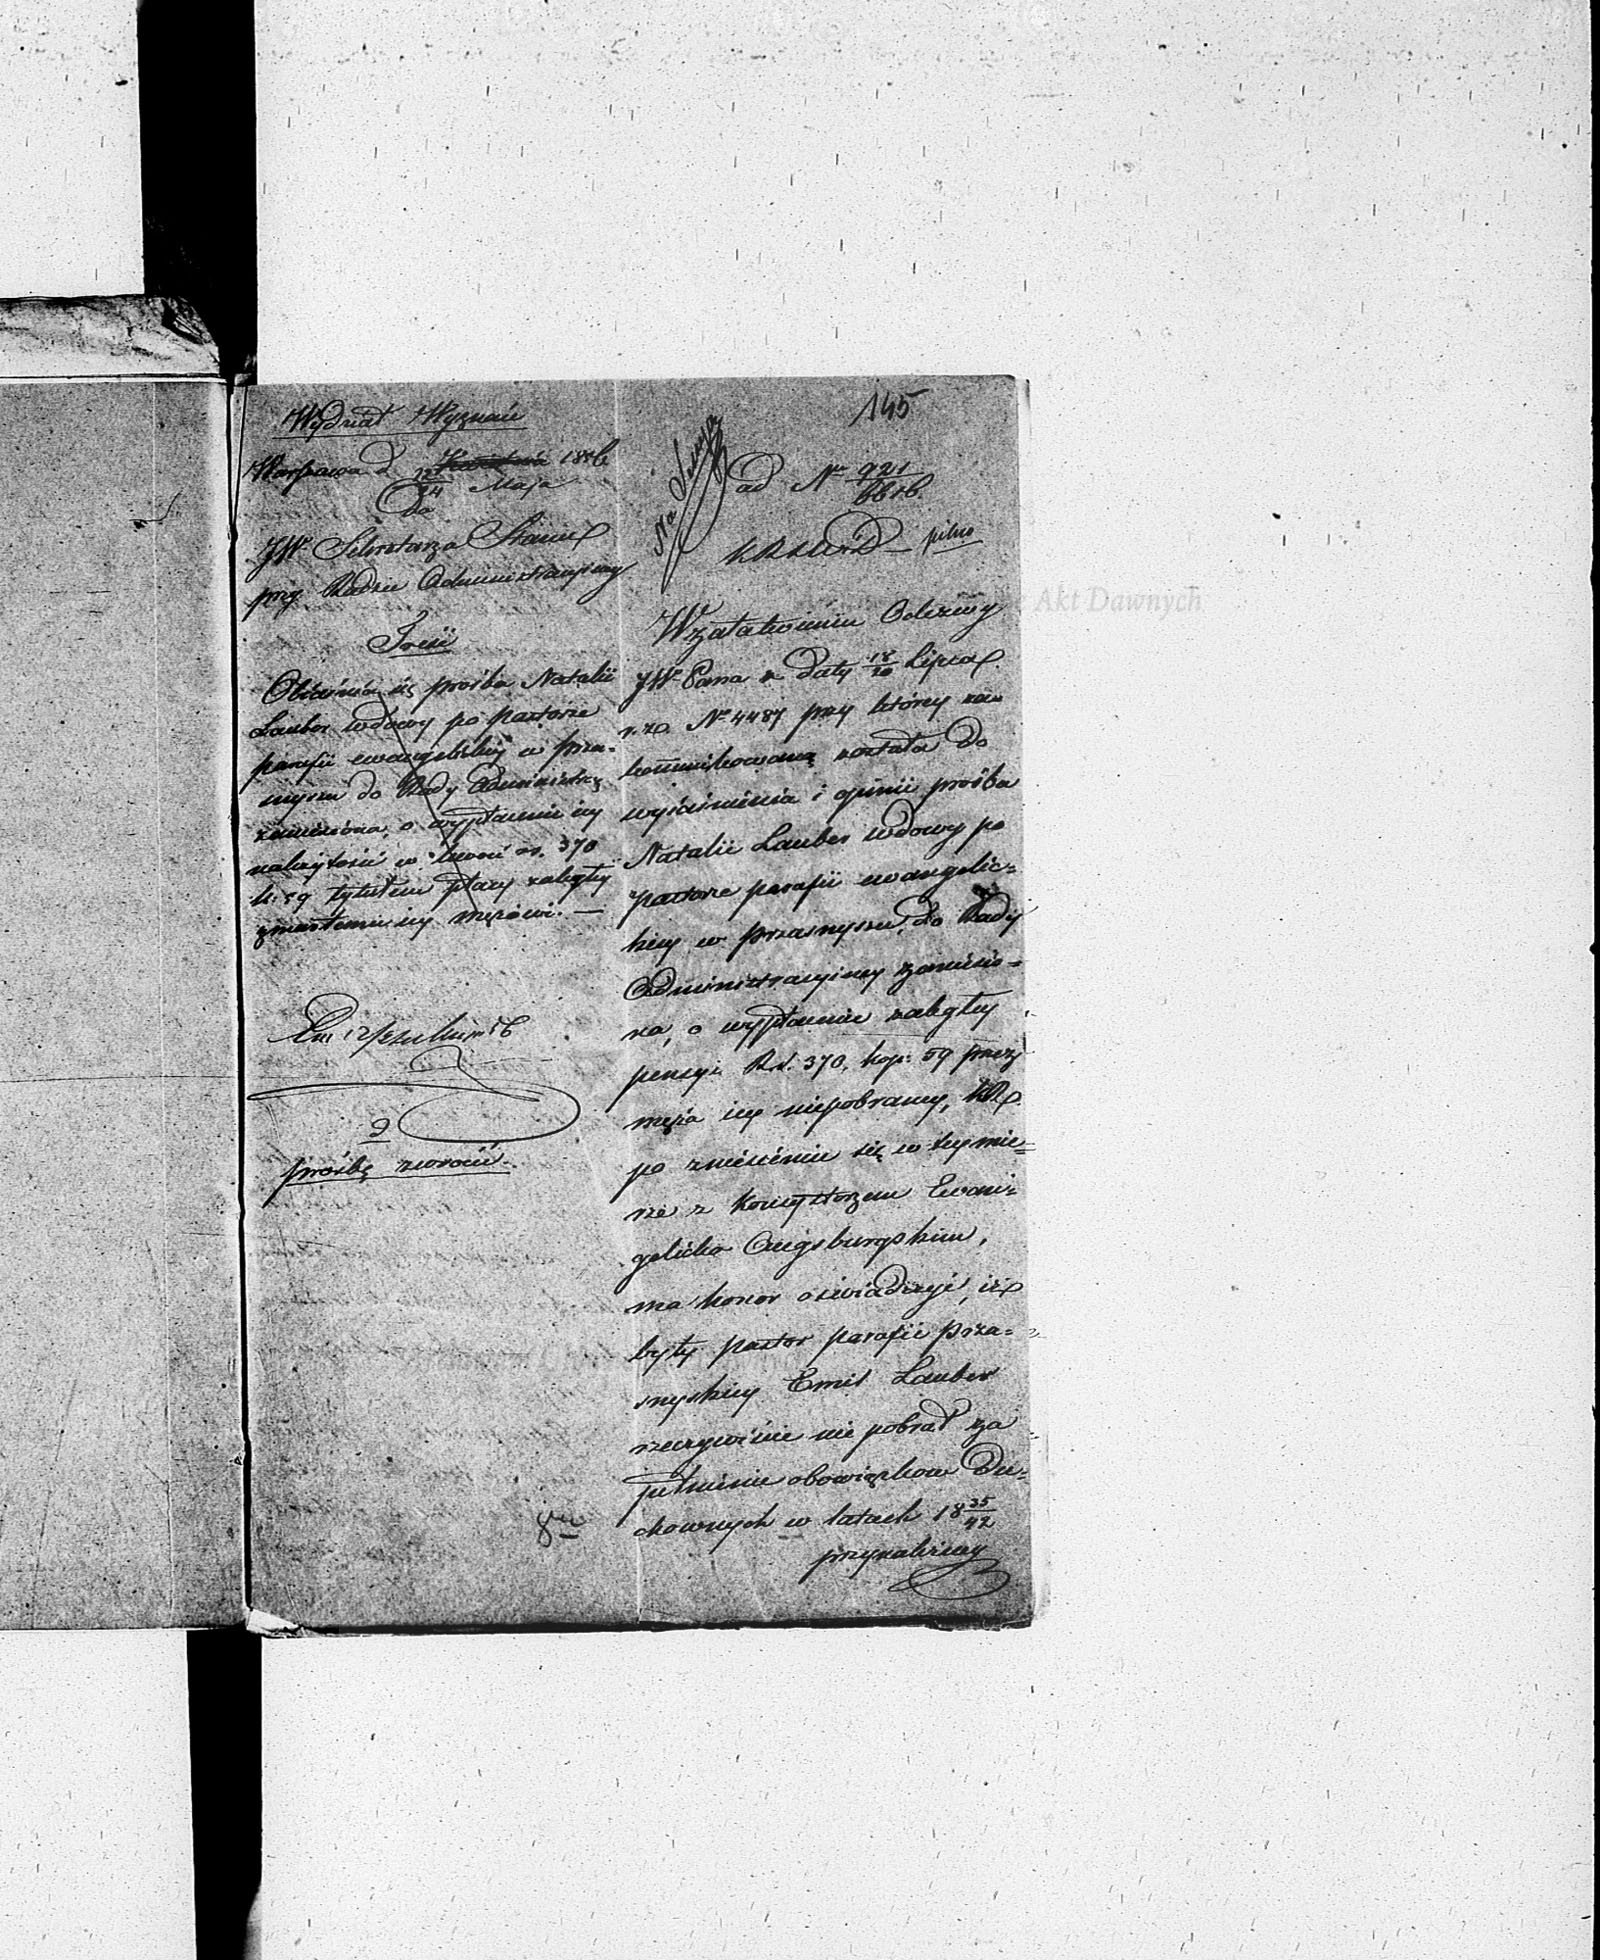 145
Wydział Wyznań
Warszawa d 12/24 Kwietnia Maja 1856
Do
JW Sekretarza Stanu
przy Radzie Administracyjney
Treść
Objaśnia się prośba Natalii
Lauber wdowy po pastorze
parafii ewangelickiej w Prza-
snyszu do Rady Administr
zaniesiona, o wypłacenie iey
należytości w kwocie rs. 370
k: 59 tytułem płacy zaległey
zmarłemu iey mężowi. —
prośbę zwrócić.
Na Sessyą
ad No 921/6616.
pilno
W załatwieniu Odezwy
JW Pana z daty 18/30 Lipca
r. z. No 4487 przy którey za-
kommunikowaną została do
wyjaśnienia i opinii prośba
Natalii Lauber wdowy po
pastorze parafii ewangelic=
kiey w Przasnyszu, do Rady
Administracyiney zaniesio=
na, o wypłacenie zaległey
pensyi R.s. 370, kop: 59 przez
męża iey niepobraney, KR
po zniesieniu się w tey mie=
rze z Konsystorzem Ewan=
gelicko Augsburgskim,
ma honor oświadczyć, iż
były pastor parafii Prza=
snyskiey Emil Lauber
rzeczywiście nie pobrał za
pełnienie obowiązków Du=
chownych w latach 18 35/42
przynależney
Archiwum Główne Akt Dawnych